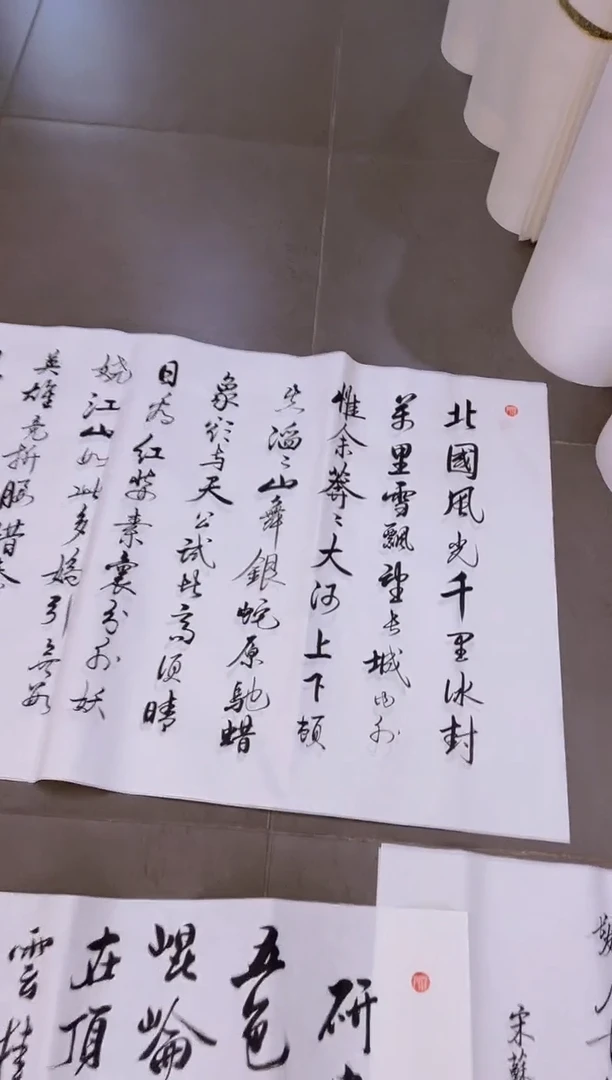 北國風光千里冰封
萬里雪飄望长城内外
惟余莽〻大河上下頓
失滔〻山舞銀蛇原馳蜡
象欲与天公試比高須晴
日看红装素裹分外妖
娆江山如此多嬌引無數
英雄竞折腰惜秦
研
五色
崐崘
在頂
雲桂
宋蘇